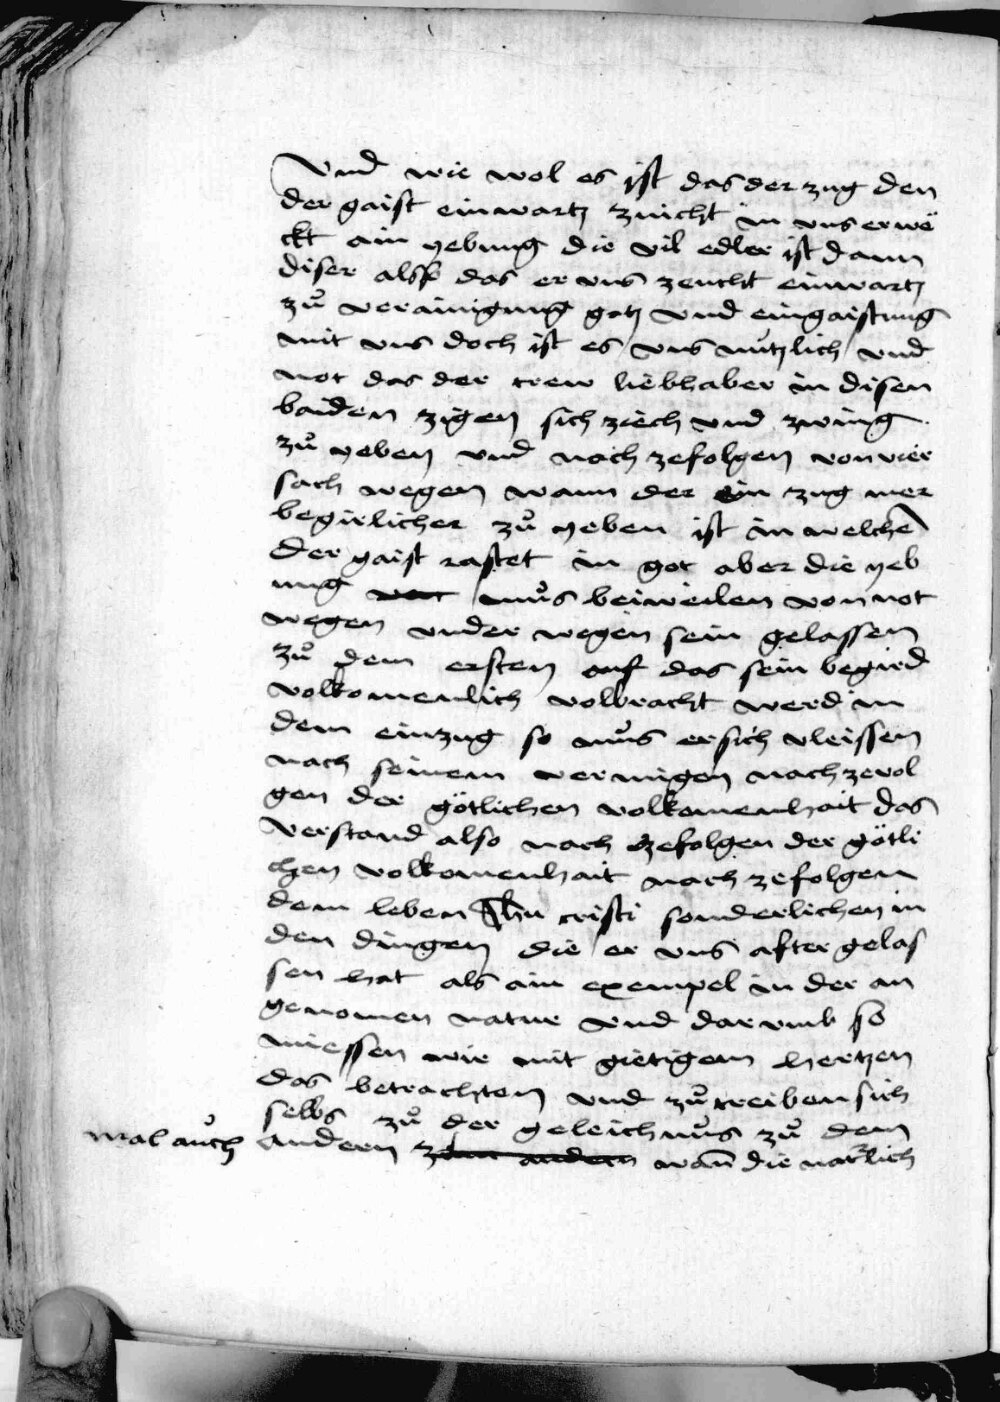 Vnd wie wol es ist das der zug den
der gaist einwartz zuicht in vns erwe
ckt ain yebung die vil edler ist dann
diser alß das er vns zeucht einwartz
zů verainigung gotz vnd eingaistung
mit vns doch ist es vns nutzlich vnd
not das der trew liebhaber in disen
baiden zigen sich ziech vnd zwing
zů yeben vnd nach zefolgen von vier
sach wegen wann der ein zug mer
begirlicher zů yeben ist in welchen
der gaist rastet in got aber die yeb
ung můs beiweilen von not
wegen vnder wegen sein gelassen
zů dem ersten auf das sein begird
volkomenlich volbracht werd in
dem einzug so můs er sich vleissen
nach seinem vermigen nach zevol
gen der götlichen volkomenhait das
verstand also nach zefolgen der götli
chen volkomenhait nach zefolgen
dem leben Jhu cristi sonderlichen in
den dingen die er vns after gelas
sen hat als ain exempel in der an
genomen natur vnd dar vmb so
miessen wir mit gietigem hertzen
das betrachten vnd zů treiben sich
selbs zů der geleichnus zů dem
mal aůch andern zům andern wan̄ die natirlich